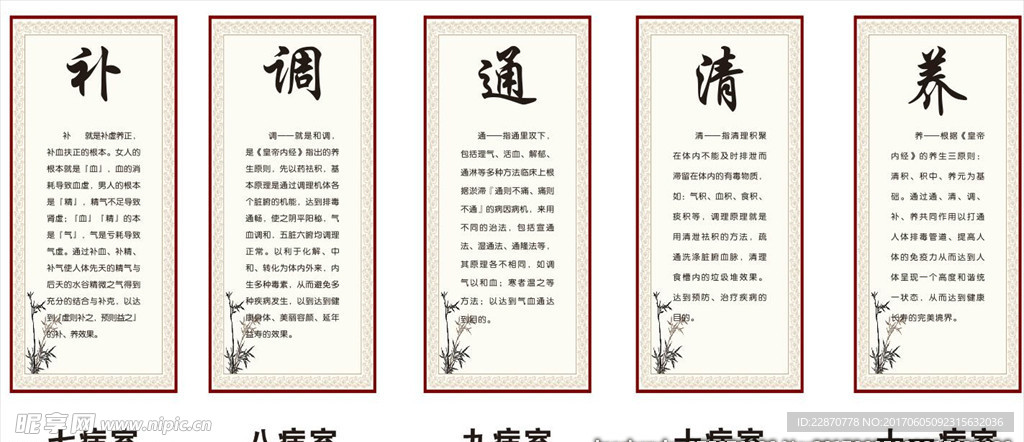 补
补 就是补虚养正,
补血扶正的根本。女人的
根本就是「血」,血的消
耗导致血虚,男人的根本
是「精」,精气不足导致
肾虚;「血」「精」的本
是「气」,气是亏耗导致
气虚。通过补血、补精、
补气使人体先天的精气与
后天的水谷精微之气得到
充分的结合与补克,以达
到「虚则补之,预则益之」
的补、养效果。
调
调——就是和调,
是《皇帝内经》指出的养
生原则,先以药祛积,基
本原理是通过调理机体各
个脏腑的机能,达到排毒
通畅,使之阴平阳秘,气
血调和,五脏六腑均调理
正常。以利于化解、中
和、转化为体内外来,内
生多种毒素,从而避免多
种疾病发生,以到达到健
康身体、美丽容颜、延年
益寿的效果。
通
通——指通里攻下,
包括理气、活血、解郁、
通淋等多种方法临床上根
据淤滞『通则不痛、痛则
不通』的病因病机,来用
不同的治法,包括宣通
法、湿通法、通隆法等,
其原理各不相同,如调
气以和血;寒者温之等
方法;以达到气血通达
到目的。
清
清——指清理积聚
在体内不能及时排泄而
滞留在体内的有毒物质,
如:气积、血积、食积、
痰积等,调理原理就是
用清泄祛积的方法,疏
通洗涤脏腑血脉,清理
食槽内的垃圾堆效果。
达到预防、治疗疾病的
目的。
养
养——根据《皇帝
内经》的养生三原则:
清积、积中、养元为基
础。通过通、清、调、
补、养共同作用以打通
人体排毒管道、提高人
体的免疫力从而达到人
体呈现一个高度和谐统
一状态,从而达到健康
长寿的完美境界。
七病室
八病室
九病室
十病室
十一病室
昵享网 www.nipic.cn
ID:22870778 NO:20170605092315632036